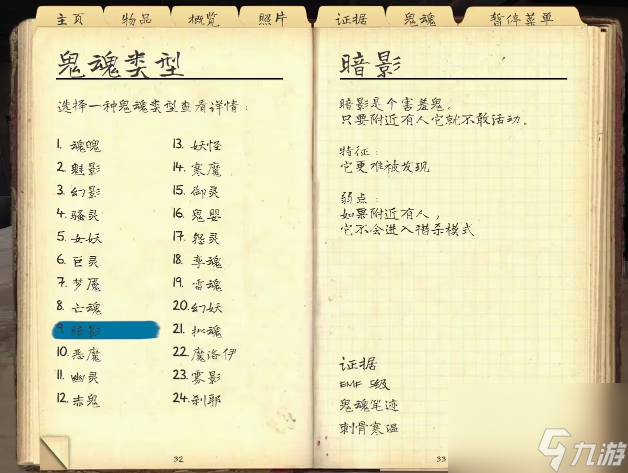 主页 物品 概览 照片 证据 鬼魂 暂停菜单
鬼魂类型
选择一种鬼魂类型查看详情：
1. 魂魄
2. 魅影
3. 幻影
4. 骚灵
5. 女妖
6. 巨灵
7. 梦魇
8. 亡魂
9. 暗影
10. 恶魔
11. 幽灵
12. 赤鬼
13. 妖怪
14. 寒魔
15. 御灵
16. 鬼婴
17. 怨灵
18. 孪魂
19. 雷魂
20. 幻妖
21. 拟魂
22. 魔洛伊
23. 雾影
24. 刹耶
32
暗影
暗影是个害羞鬼。
只要附近有人它就不敢活动。
特征：
它更难被发现
弱点：
如果附近有人，
它不会进入猎杀模式
证据
EMF 5级
鬼魂笔迹
刺骨寒温
33
九游